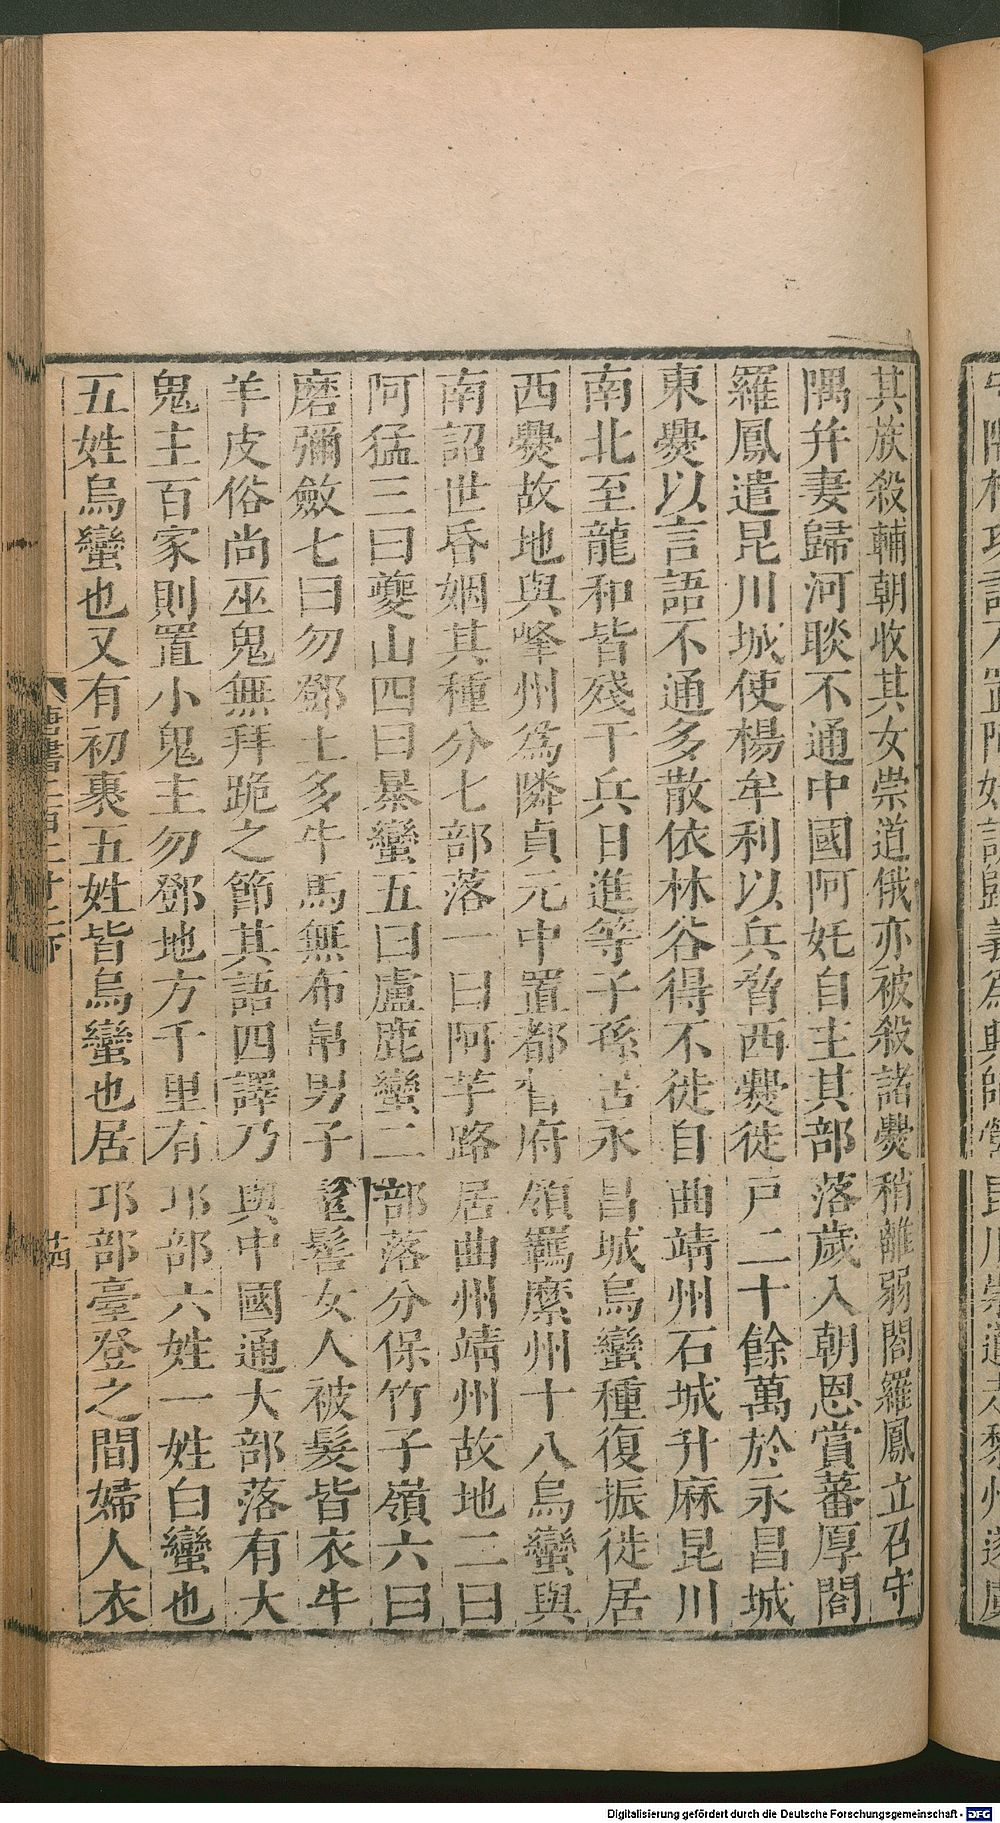 其族殺輔朝收其女崇道俄亦被殺諸爨稍離弱閤羅鳳立召守
隅幷妻歸河睒不通中國阿奼自主其部落歲入朝恩賞蕃厚閤
羅鳳遣昆川城使楊牟利以兵脅西爨徙戸二十餘萬於永昌城
東爨以言語不通多散依林谷得不徙自曲靖州石城升麻昆川
南北至龍和皆殘于兵日進等子孫居永昌城烏蠻種復振徙居
西爨故地與峰州爲隣貞元中置都督府領羈縻州十八烏蠻與
南詔世昏姻其種分七部落一曰阿芋路居曲州靖州故地二曰
阿猛三曰夔山四曰暴蠻五曰盧鹿蠻二部落分保竹子嶺六曰
磨彌斂七曰勿鄧土多牛馬無布帛男子髽髻女人被髮皆衣牛
羊皮俗尚巫鬼無拜跪之節其語四譯乃與中國通大部落有大
鬼主百家則置小鬼主勿鄧地方千里有邛部六姓一姓白蠻也
五姓烏蠻也又有初裹五姓皆烏蠻也居邛部臺登之間婦人衣
唐書二百二十二下
十四
Digitalisierung gefördert durch die Deutsche Forschungsgemeinschaft - DFG